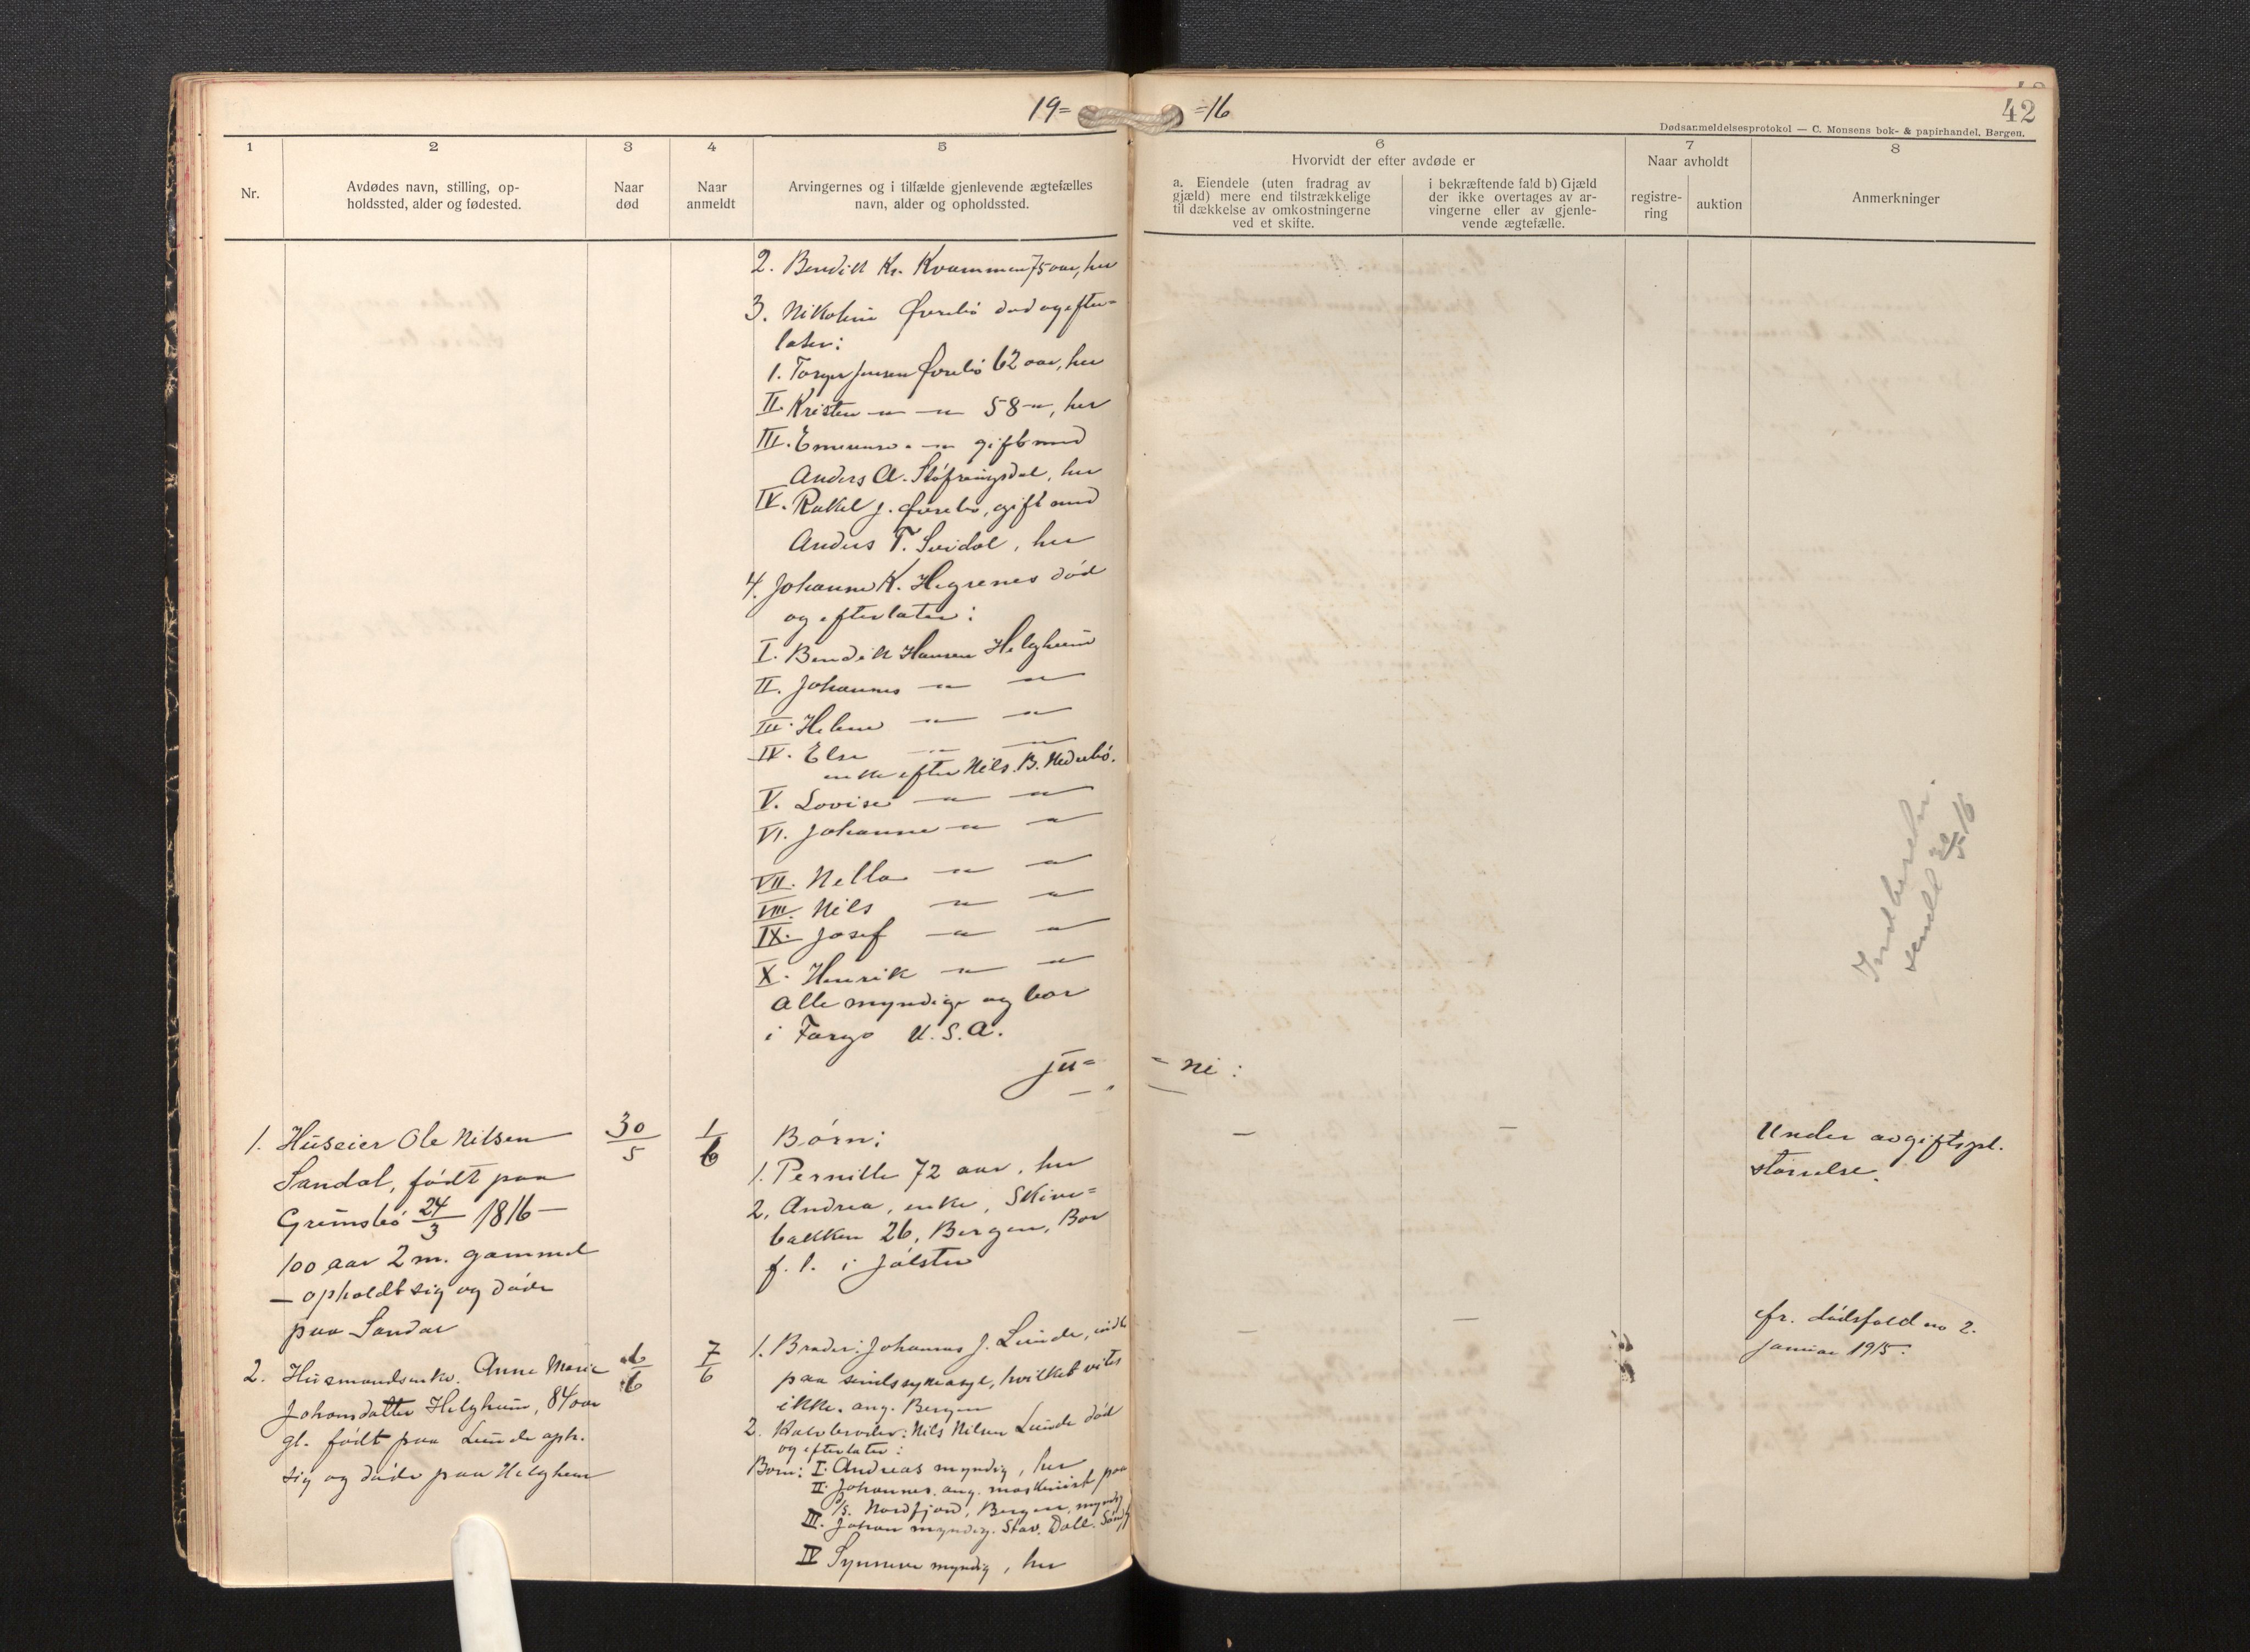 19= =16
42
Dødsanmeldelsesprotokol — C. Monsens bok- & papirhandel, Bergen.
1
Nr.
2
Avdødes navn, stilling, op-
holdssted, alder og fødested.
3
Naar
død
4
Naar
anmeldt
5
Arvingernes og i tilfælde gjenlevende ægtefælles
navn, alder og opholdssted.
6
Hvorvidt der efter avdøde er
a. Eiendele (uten fradrag av
gjæld) mere end tilstrækkelige
til dækkelse av omkostningerne
ved et skifte.
i bekræftende fald b) Gjæld
der ikke overtages av ar-
vingerne eller av gjenle-
vende ægtefælle.
7
Naar avholdt
registre-
ring
auktion
8
Anmerkninger
2. Bendik Kr. Kvammen 75 aar, her
3. Nikoline Øvrebö död og efter=
later:
1. Torger Jensen Øvrebö 62 aar, her
II. Kristen —"— —"— 58 —"—, her
III. —"— gift med
Anders A. Støfringsdal, her
IV. Rakel J. Øvrebö, gift med
Anders T. Svidal, her
4. Johanne K. Hegrenes död
og efterlater:
I. Bendik Hansen Helgheim
II. Johannes —"— —"—
III. Helene —"— —"—
IV. Else —"— —"—
enke efter Nils B. Nedrebö.
V. Lovise —"— —"—
VI. Johanne —"— —"—
VII. Nella —"— —"—
VIII. Nils —"— —"—
IX. Josef —"— —"—
X. Henrik —"— —"—
alle myndige og bor
i Fargo U.S.A.
Indberetn.
sendt 30/5 16
ju= =ni:
1. Huseier Ole Nilsen
Sandal, født paa
Grimsbö 24/3 1816 —
100 aar 2 m. gammel
— opholdt sig og döde
paa Sandal
30/5
1/6
Børn:
1. Pernille 72 aar, her
2. Andrea, enke, Skive=
bakken 26, Bergen, Bor
f. t. i Jölster
—
—
Under avgiftspl.
størrelse.
2. Husmandsenke Anne Marie
Johansdatter Helgheim, 84 aar
gl. født paa Lunde oph.
sig og döde paa Helgheim
6/6
7/6
1. Broder: Johannes J. Lunde, indl.
paa sindssykeasyl, hvilket vites
ikke. ang. Bergen
2. Halvbroder: Nils Nilsen Lunde död
og efterlater:
Børn: I. Andreas myndig, her
II. Johannes, ang. maskinist paa
D/S. Nordfjord, Bergen, myndig
III. Johan myndig. Stav. Dale. Söndfj
IV Synneve myndig, her
—
—
cfr. dødsfald no 2.
januar 1915.